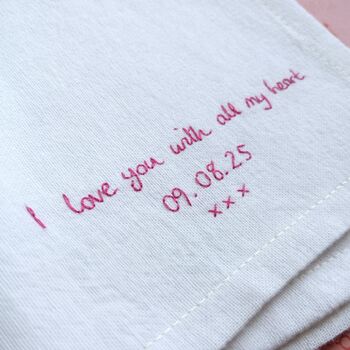 I love you with all my heart
09.08.25
xxx